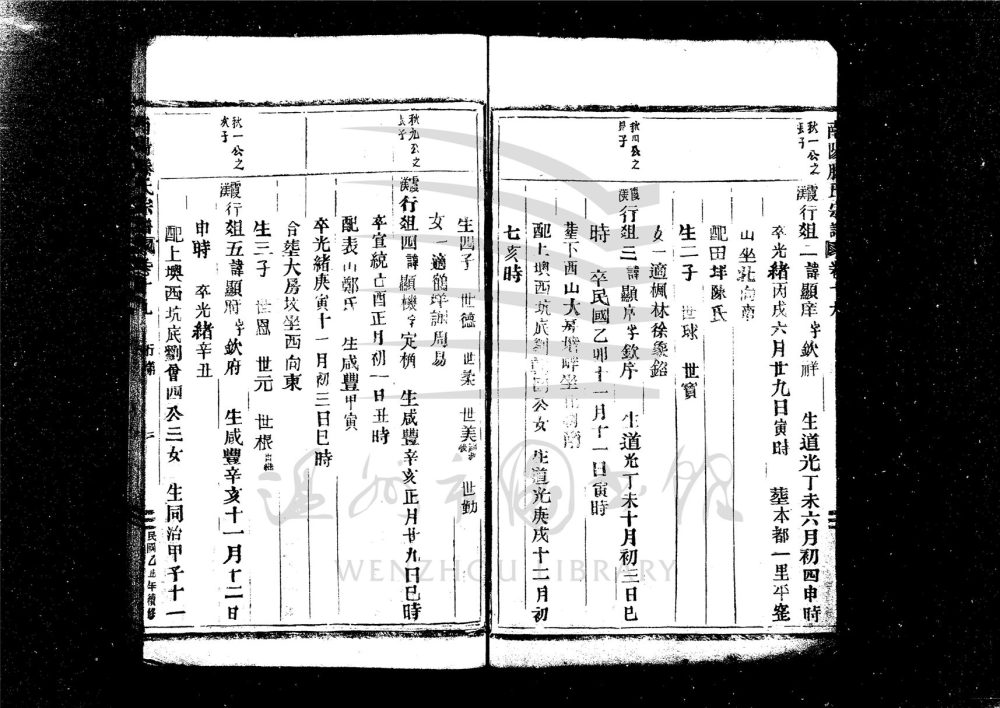 南陽滕氏宗譜
秋一公之
長子
霞漢行俎二諱顯庠字欽祥 生道光丁未六月初四申時
卒光緒丙戌六月廿九日寅時 塟本都一里平
山坐北向南
配田垟陳氏
秋四公之
長子
霞漢行俎三諱顯序字欽序 生道光丁未十月初三日巳
時 卒民國乙卯十一月十一日寅時
女一適楓林徐象銘
生二子 世球 世寶
塟下西山大
配上墺西坑底劉 公女 生道光庚戌十二月初
七亥時
生四子 世德 世柔 世美 世勤
女一適鶴垟謝周易
秋九公之
長子
霞漢行俎四諱顯機字定楠 生咸豐辛亥正月廿九日巳時
卒宣統己酉正月初一日丑時
配表山鄭氏 生咸豐甲寅
卒光緒庚寅十一月初三日巳時
合塟大房坟坐西向東
生三子 世恩 世元 世根
秋一公之
次子
霞漢行俎五諱顯府字欽府 生咸豐辛亥十一月十二日
申時 卒光緒辛丑
配上墺西坑底劉曾四公三女 生同治甲子十一
民國乙丑年續修
溫州市圖書館
WENZHOU LIBRARY